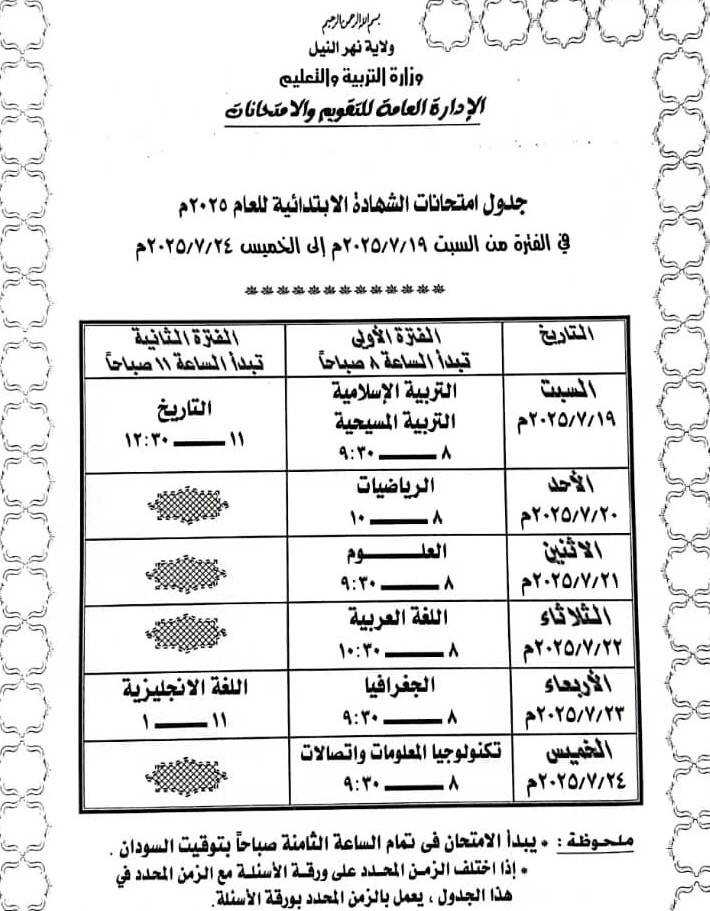 بسم الله الرحمن الرحيم
ولاية نهر النيل
وزارة التربية والتعليم
الإدارة العامة للتقويم والامتحانات
جدول امتحانات الشهادة الابتدائية للعام ٢٠٢٥م
في الفترة من السبت ٢٠٢٥/٧/١٩م إلى الخميس ٢٠٢٥/٧/٢٤م
*************
التاريخ	الفترة الأولى	الفترة الثانية
تبدأ الساعة ٨ صباحاً	تبدأ الساعة ١١ صباحاً
السبت	التربية الإسلامية	التاريخ
٢٠٢٥/٧/١٩م	التربية المسيحية	١١ ــــــ ١٢:٣٠
٨ ــــــ ٩:٣٠
الأحد	الرياضيات
٢٠٢٥/٧/٢٠م	٨ ــــــ ١٠
الاثنين	العلـــــــوم
٢٠٢٥/٧/٢١م	٨ ــــــ ٩:٣٠
الثلاثاء	اللغة العربية
٢٠٢٥/٧/٢٢م	٨ ــــــ ١٠:٣٠
الأربعاء	الجغرافيا	اللغة الانجليزية
٢٠٢٥/٧/٢٣م	٨ ــــــ ٩:٣٠	١١ ــــــ ١
الخميس	تكنولوجيا المعلومات واتصالات
٢٠٢٥/٧/٢٤م	٨ ــــــ ٩:٣٠
ملحوظة : * يبدأ الامتحان فى تمام الساعة الثامنة صباحاً بتوقيت السودان .
* إذا اختلف الزمن المحدد على ورقة الأسئلة مع الزمن المحدد في
هذا الجدول ، يعمل بالزمن المحدد بورقة الأسئلة.